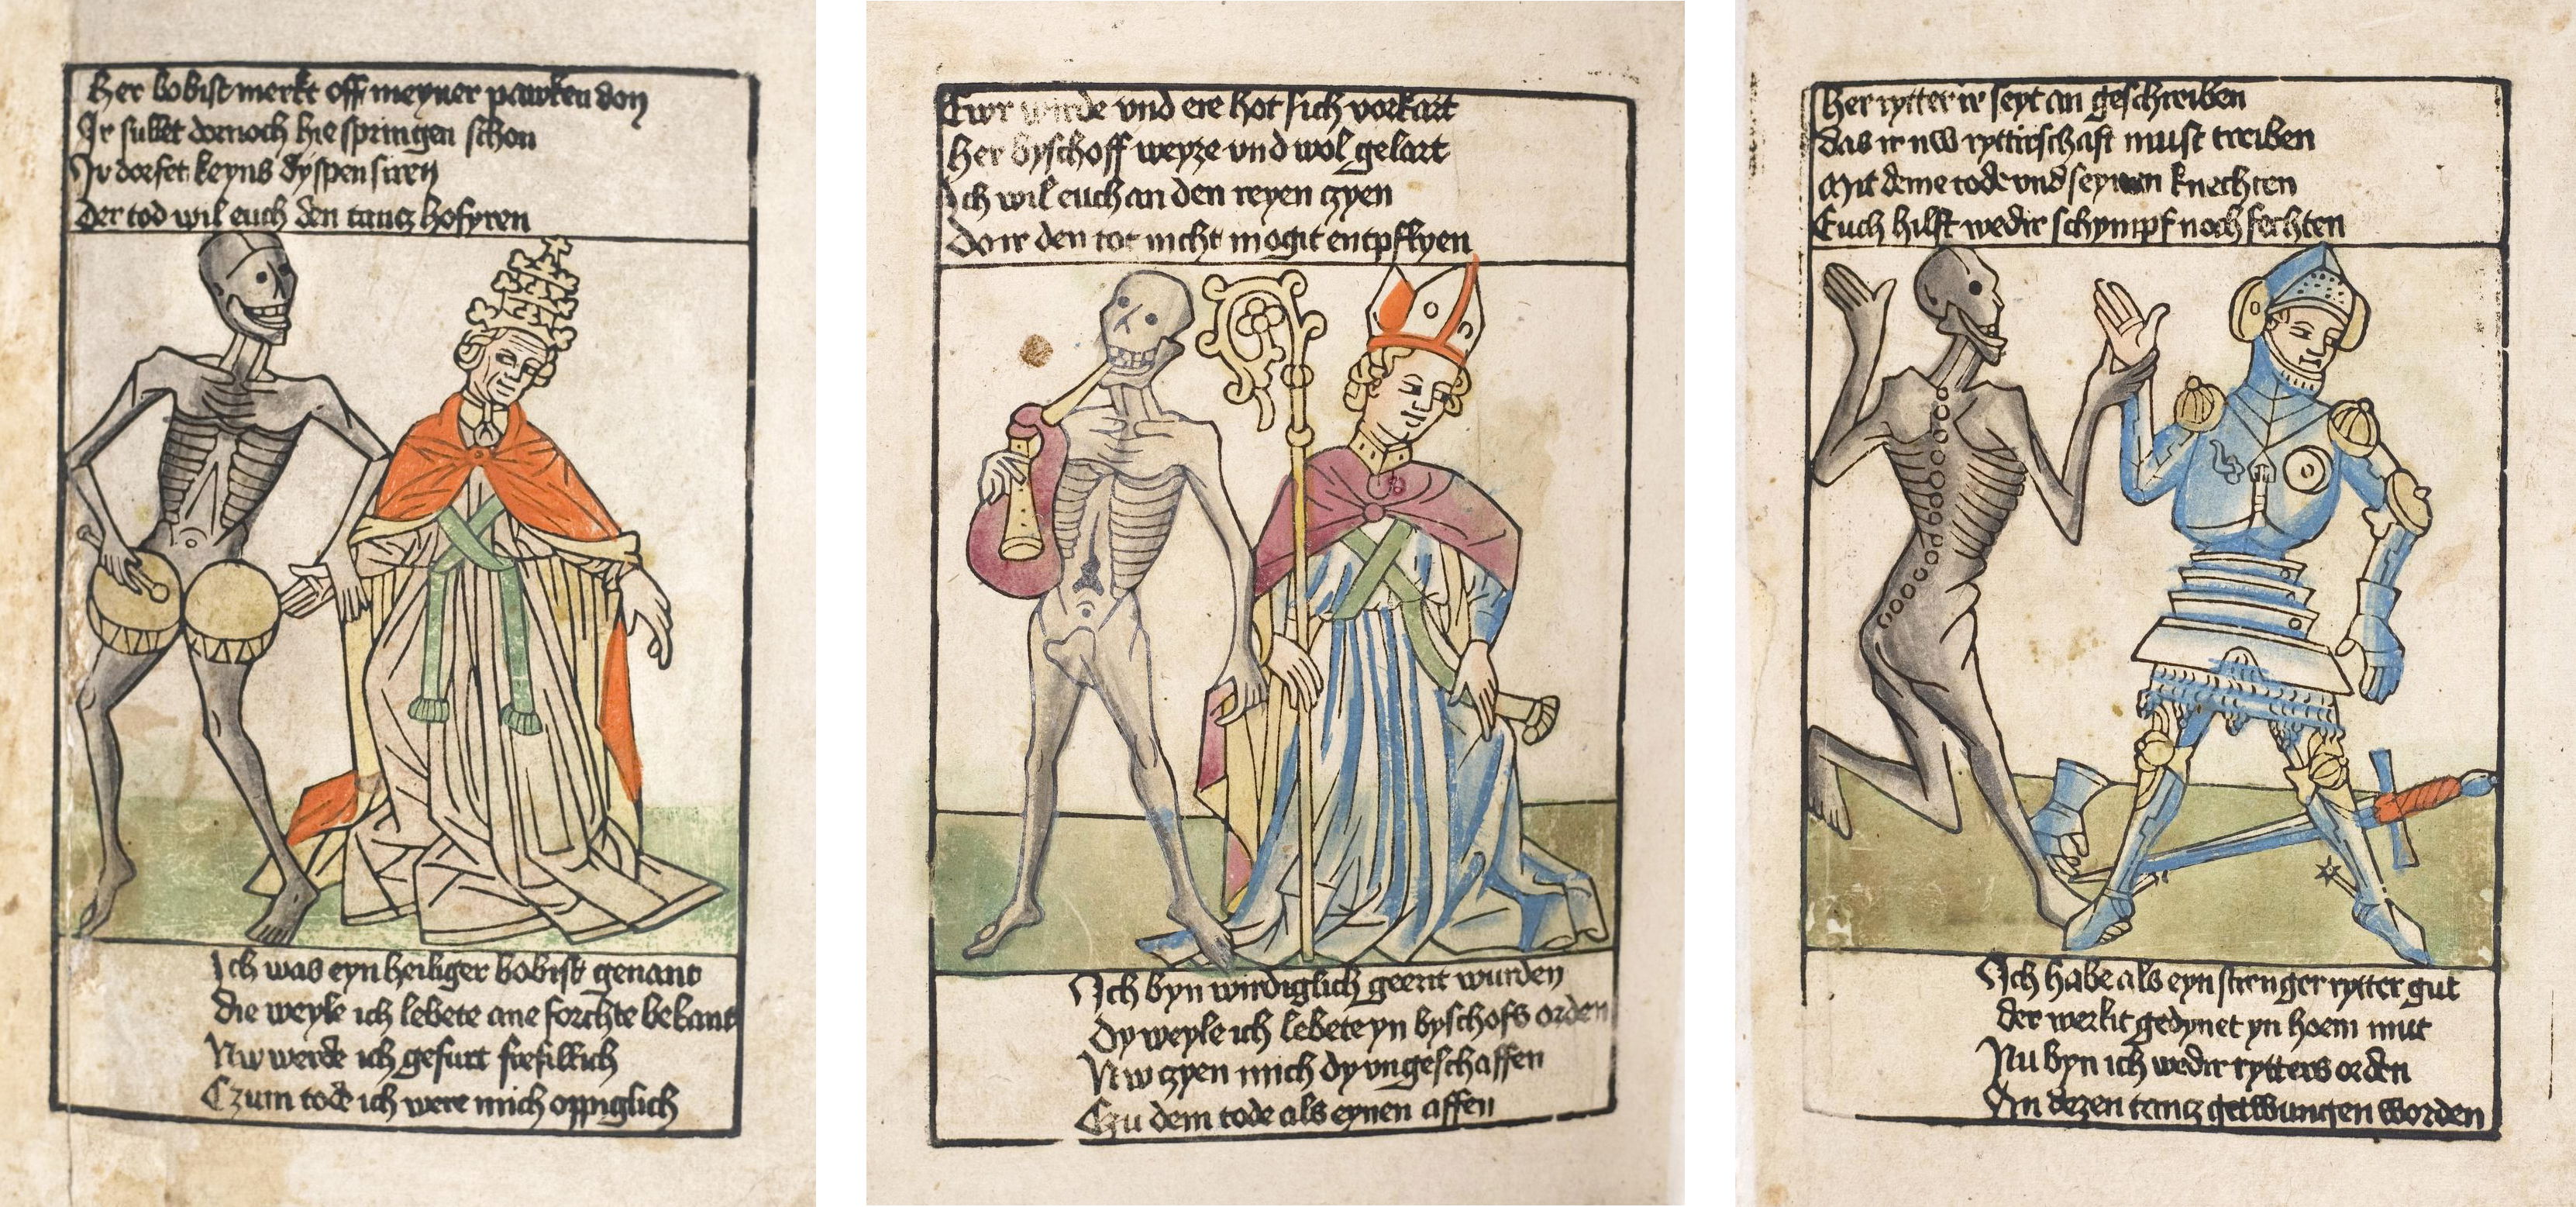 Her bobist merkt off meyner pawken don
Ir sullet dornoch hie springen schon
Ir dorfet keyns dyspensiren
Der tod wil euch den tantz hofyren
Ich was eyn heiliger bobist genant
Die weyle ich lebete ane forchte bekant
Nw werde ich gefurt frefillich
Czum tode ich were mich oppiglich
Ewr wirde vnd ere hot sich vorkart
Her byschoff weyze vnd wol gelart
Ich wil euch an den reyen czyen
Do ir den tot nicht mogit entpflyen
Ich byn wirdiglich geert wurden
Dy weyle ich lebete yn byschofs orden
Nw czyen mich dy vngeschaffen
Czu dem tode als eynen affen
Her rytter ir seyt an geschreiben
Das ir nw ryttirschaft must treiben
Mit deme tode vnd seynen knechten
Euch hilft wedir schympf noch fechten
Ich habe als eyn strenger rytter gut
Der werlit gedynet yn hoem mut
Nu byn ich wedir rytters orden
An dezen tantz getwungen worden